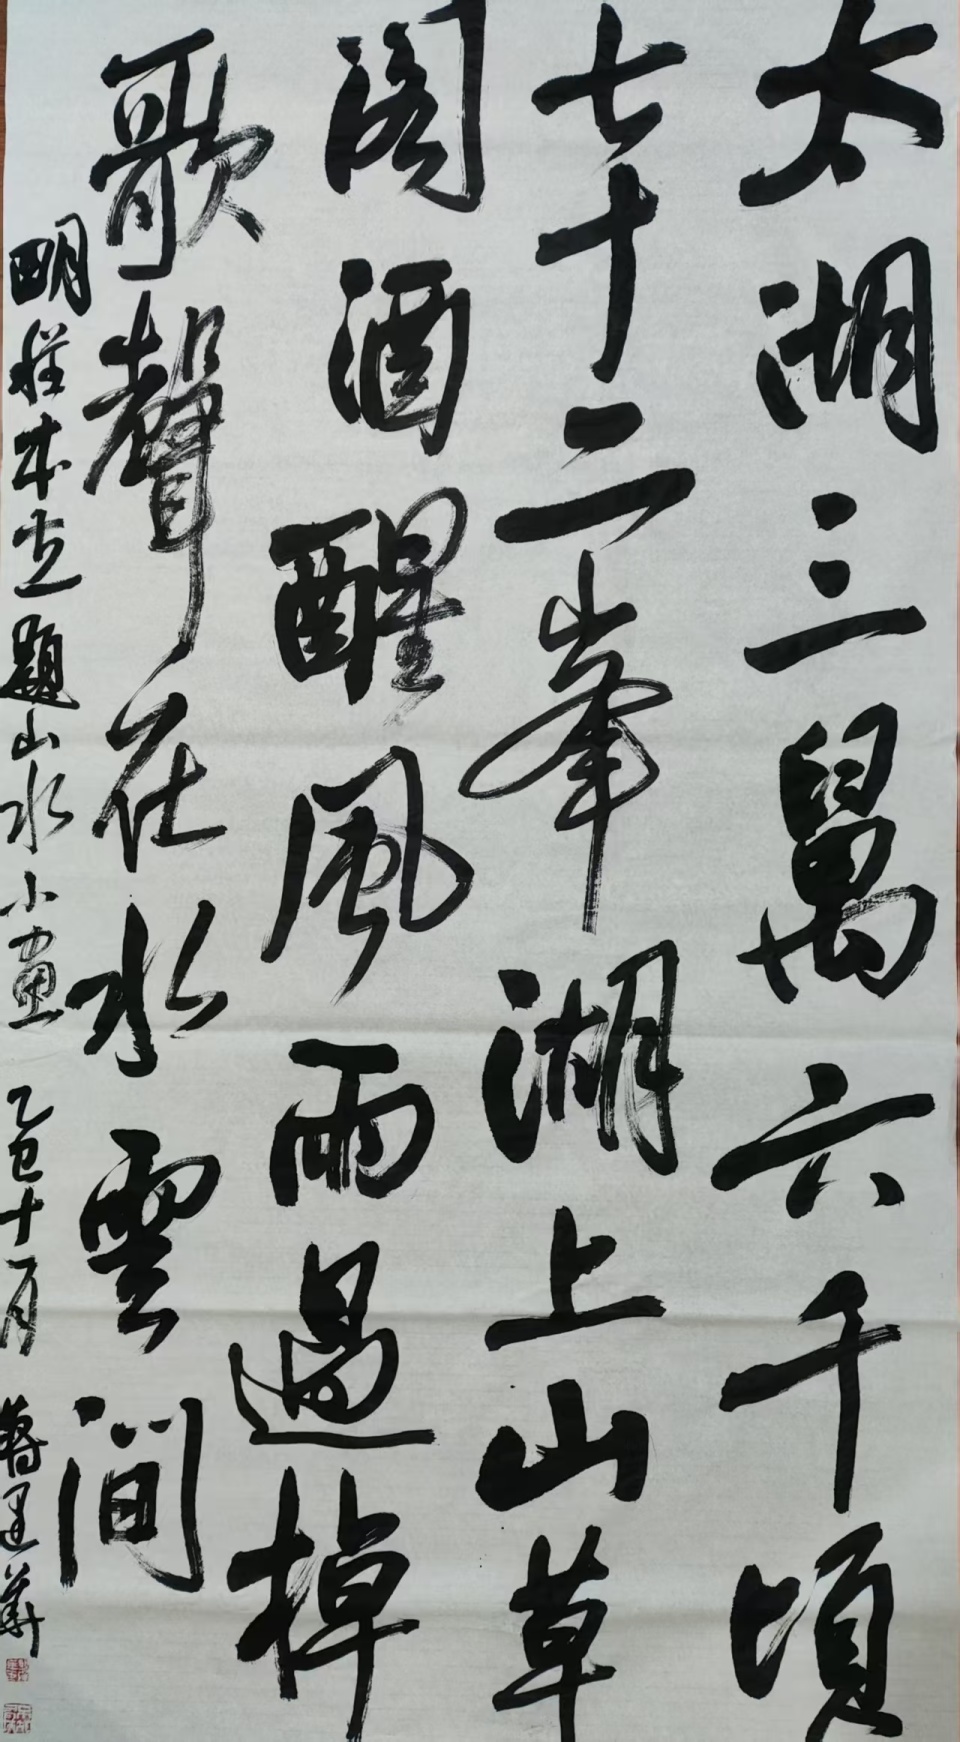 太湖三萬六千頃
七十二峯湖上山草
閣酒醒風雨過棹
歌聲在水雲間
明程本立題山水小畫 乙巳十一月 蔣建華